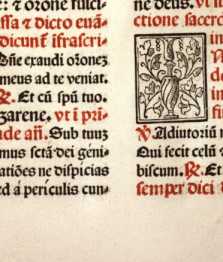 : ⁊ orōne ſuſci-
ſſa ⁊ dicto euā-
dicunt̄ īfraſcri-
Dñe exaudi orōneȝ
meus ad te veniat.
℟. Et cū ſpū tuo.
zarene. vt ī pri-
ade añ. Sub tuuȝ
mus ſctā dei geni-
atiōes ne diſpicias
ed a periculis cun-
ne deus. vt
ctione ſacer
℣ Adiutoriū
Qui fecit celū
biscum. ℟. Et
ſemper dici